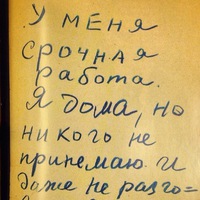 У МЕНЯ
СРОЧНАЯ
работа.
Я дома, но
никого не
принемаю. И
даже не разго=